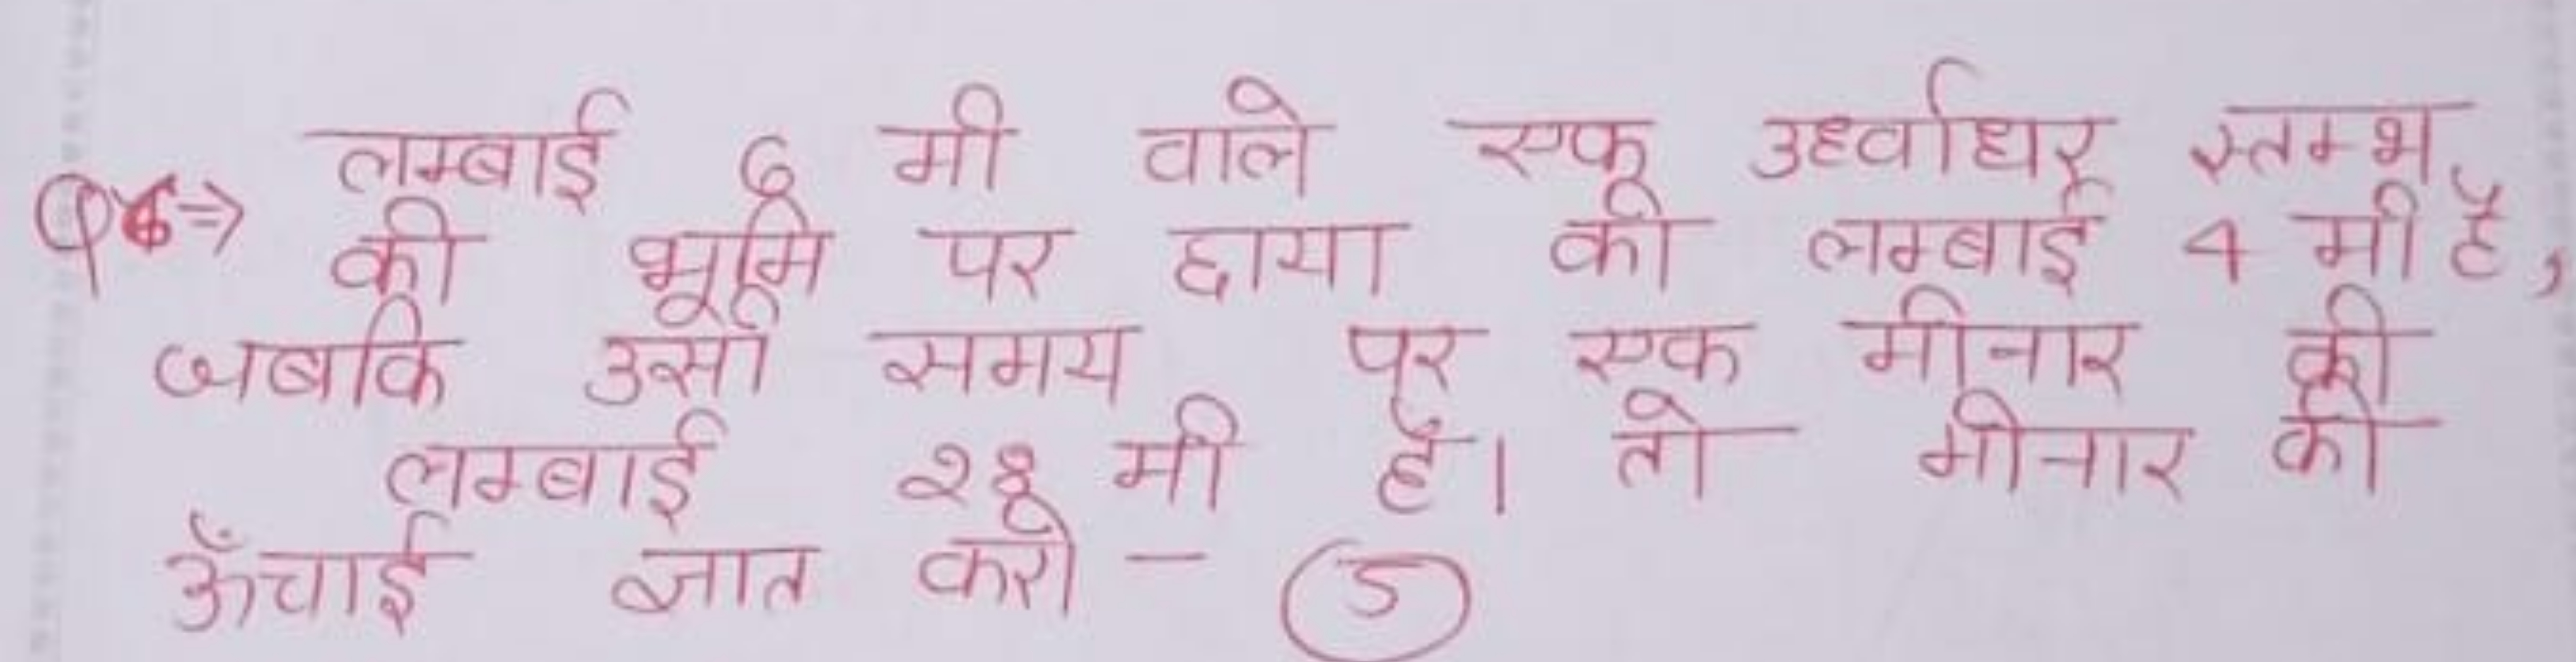 Q6⇒ लम्बाई 6 मी वाले एक उर्ध्वाधर स्तम्भ
की भूमि पर छाया की लम्बाई 4 मी है,
जबकि उसी समय पर एक मीनार की
लम्बाई २8 मी है। तो मीनार की
ऊँचाई ज्ञात करो - 5